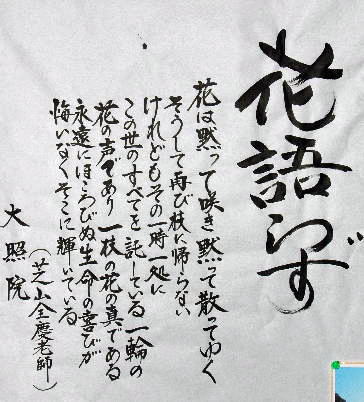 花語らず
花は黙って咲き黙って散ってゆく
そうして再び枝に帰らない
けれどもその一時一処に
この世のすべてを託している一輪の
花の声であり一枝の花の真である
永遠にほろびぬ生命の喜びが
悔いなくそこに輝いている
大照院
(芝山全慶老師)